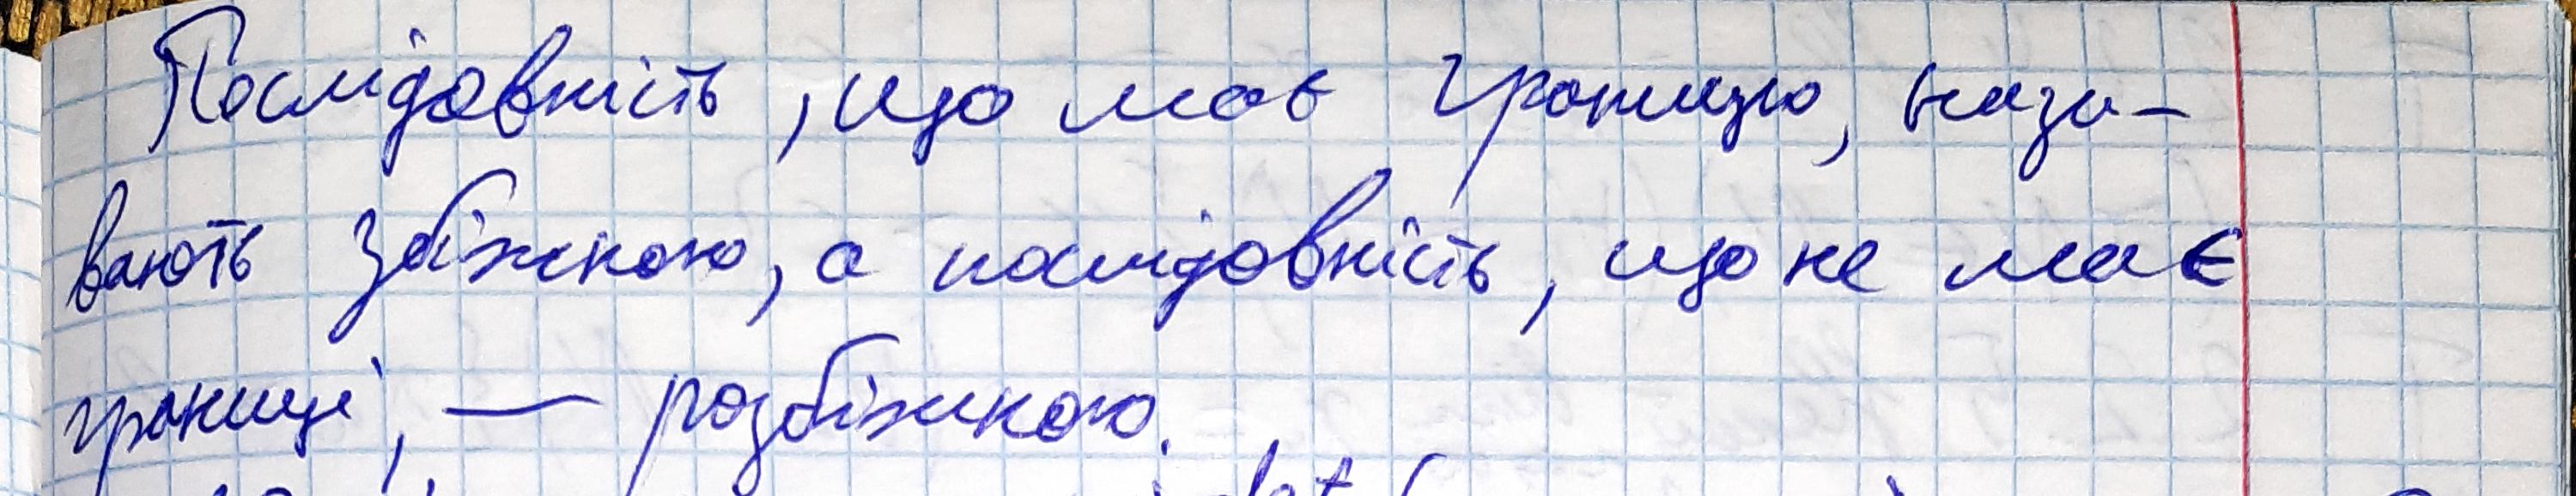 Послідовність, що має границю, нази-
вають збіжною, а послідовність, що не має
границі, — розбіжною.